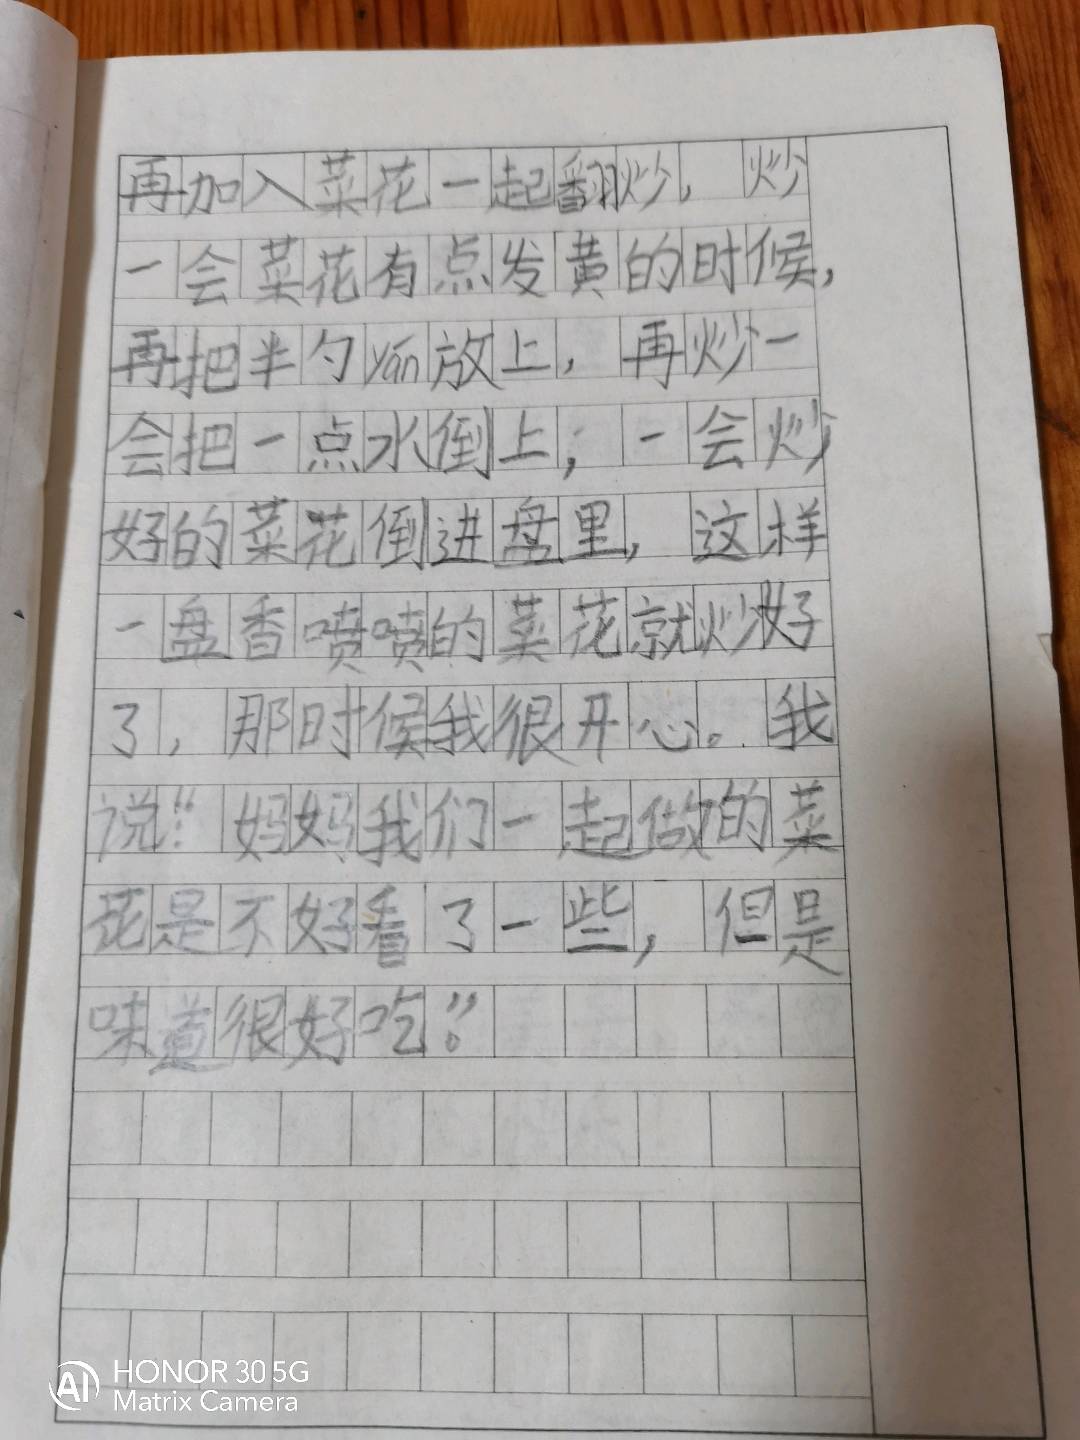 再加入菜花一起翻炒，炒
一会菜花有点发黄的时候，
再把半勺yán放上，再炒一
会把一点水倒上；一会炒
好的菜花倒进盘里，这样
一盘香喷喷的菜花就炒好
了，那时候我很开心。我
说：“妈妈我们一起做的菜
花是不好看了一些，但是
味道很好吃。”
HONOR 30 5G
Matrix Camera